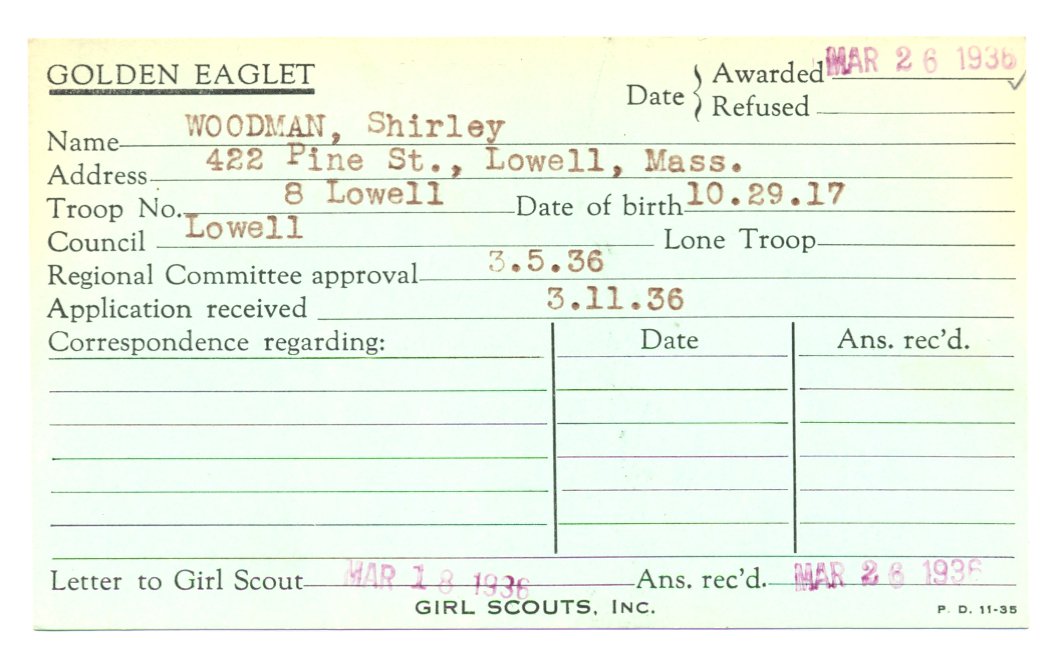 GOLDEN EAGLET
Date { Awarded MAR 26 1936 ✓
Refused
Name WOODMAN, Shirley
Address 422 Pine St., Lowell, Mass.
Troop No. 8 Lowell Date of birth 10.29.17
Council Lowell Lone Troop
Regional Committee approval 3.5.36
Application received 3.11.36
Correspondence regarding: Date Ans. rec'd.
Letter to Girl Scout MAR 18 1936 Ans. rec'd. MAR 26 1936
GIRL SCOUTS, INC. P. D. 11-35